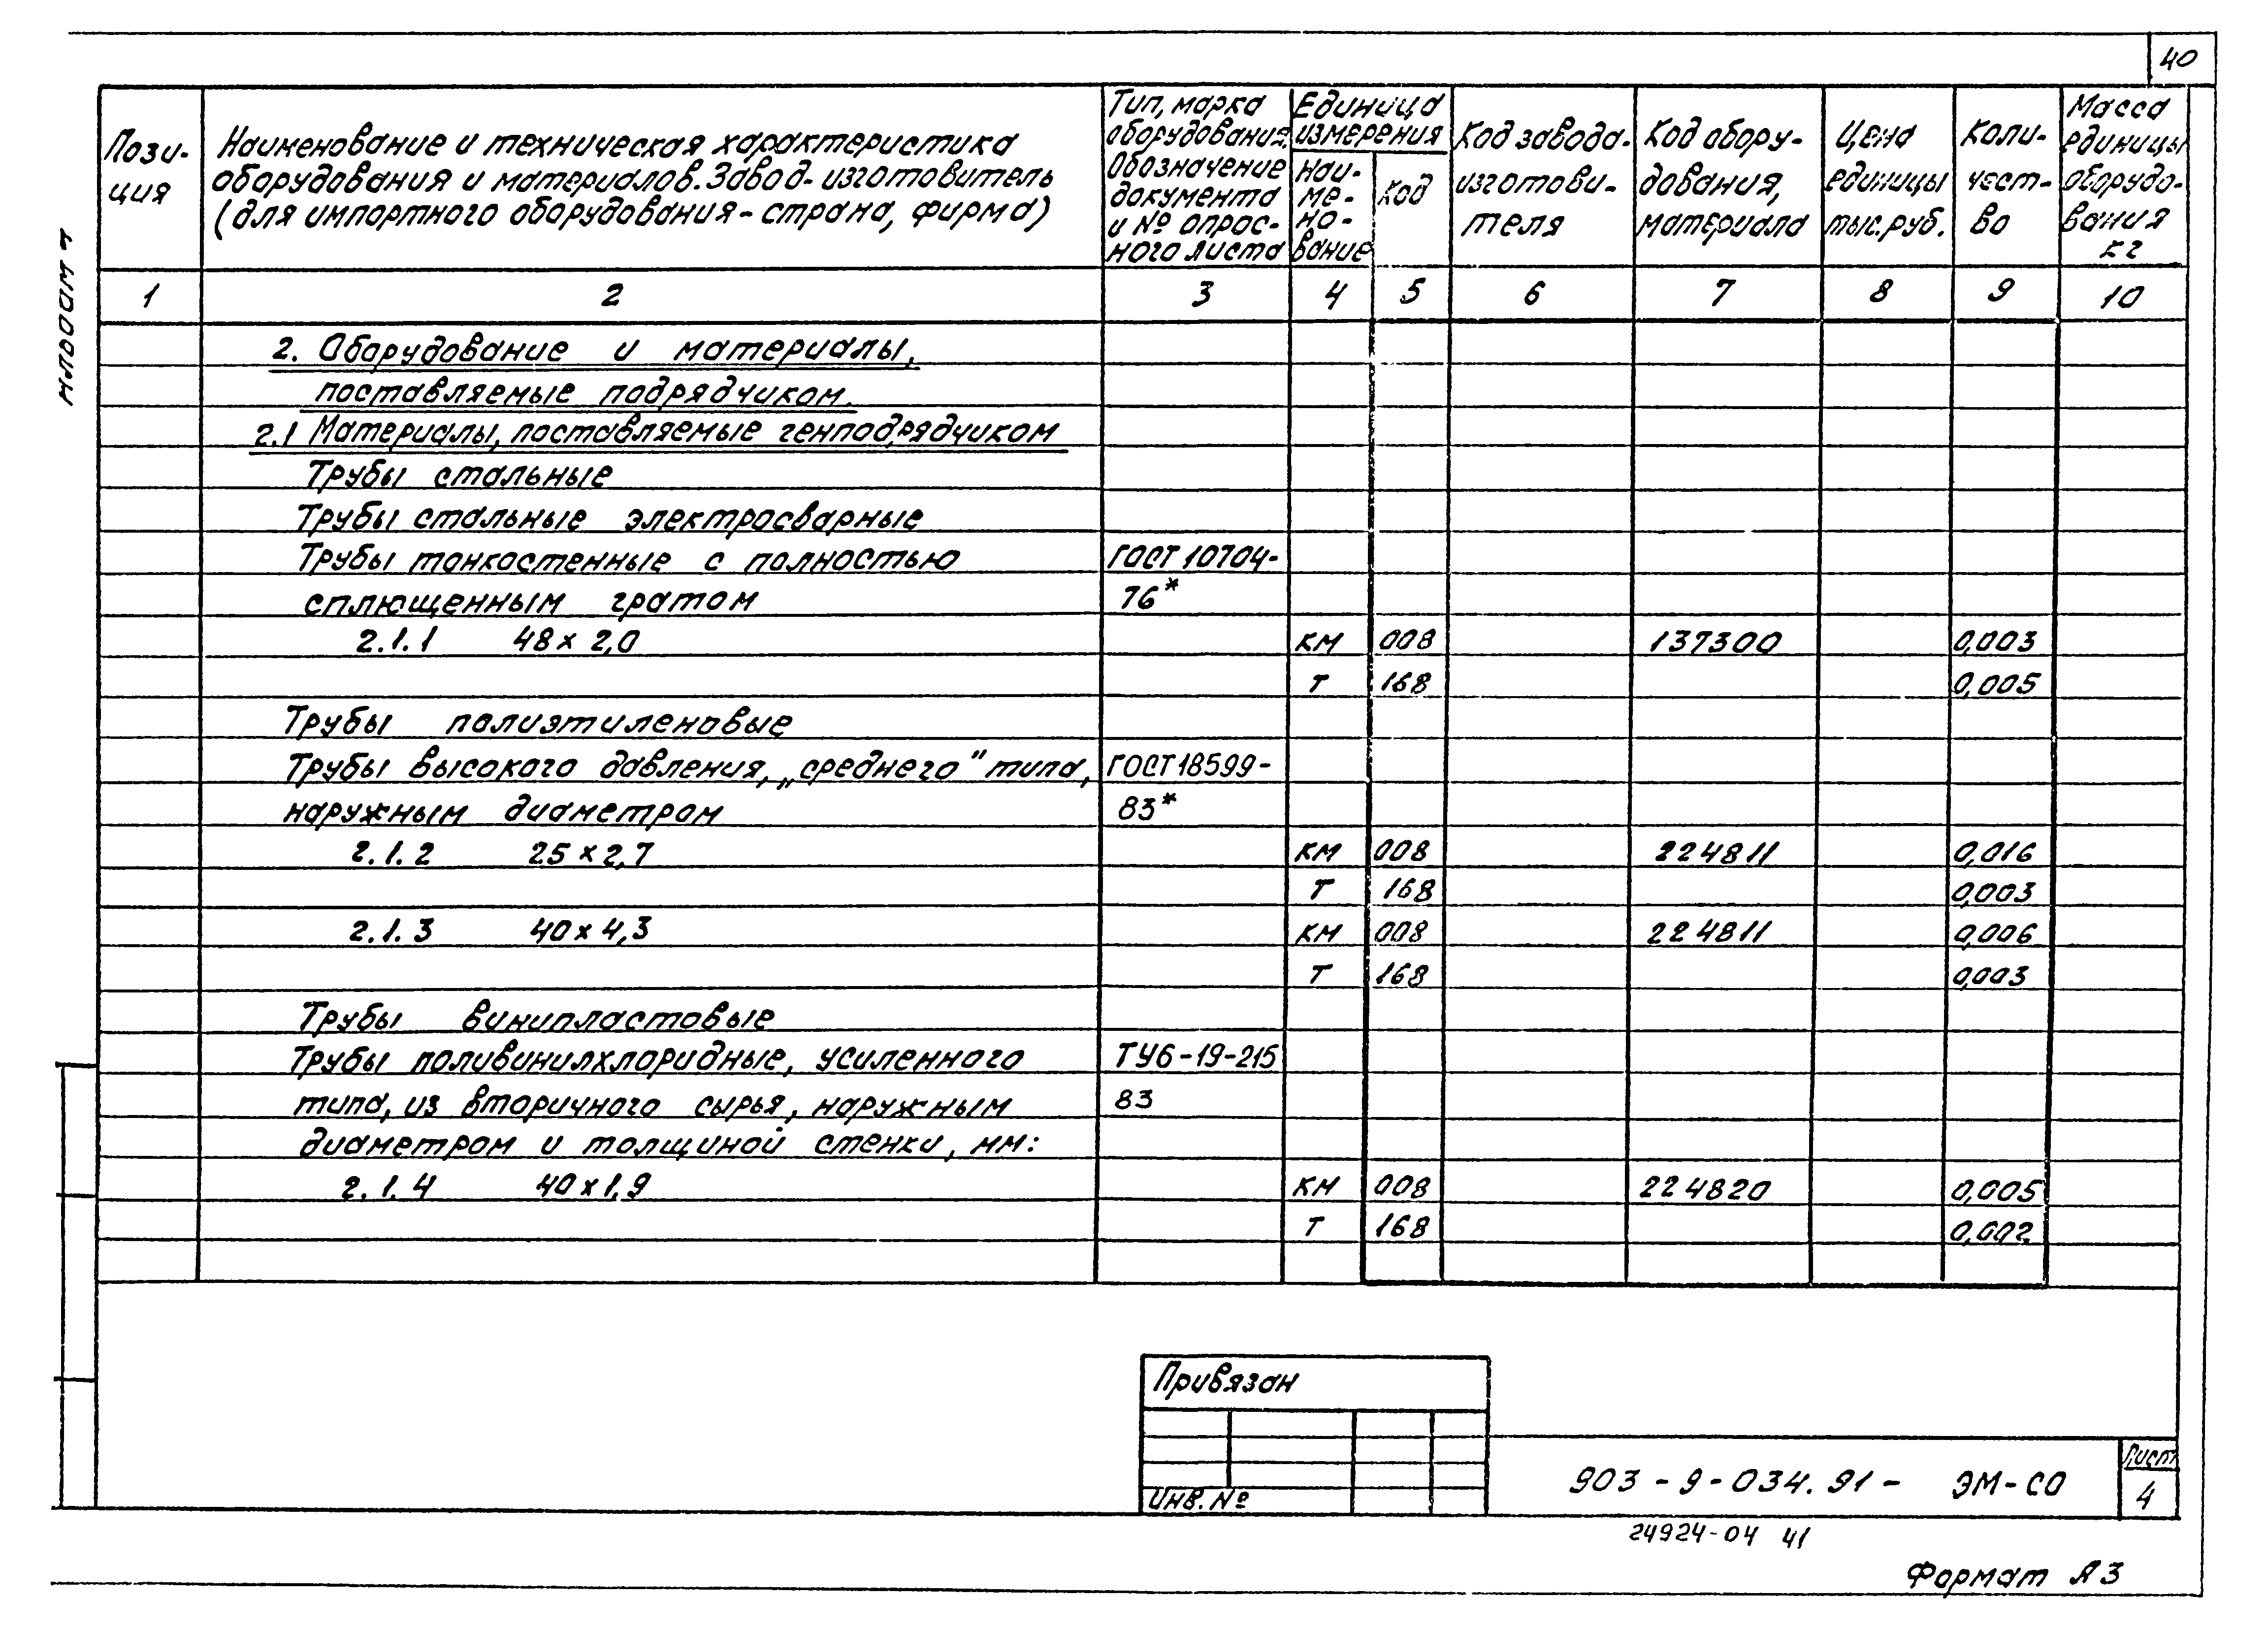 40
Альбом 4
Пози-
ция
Наименование и техническая характеристика
оборудования и материалов. Завод-изготовитель
(для импортного оборудования - страна, фирма)
Тип, марка
оборудования.
Обозначение
документа
и № опрос-
ного листа
Единица
измерения
Наи-
ме-
но-
вание
Код
Код завода-
изготови-
теля
Код обору-
дования,
материала
Цена
единицы
тыс.руб.
Коли-
чест-
во
Масса
единицы
оборудо-
вания
кг
1 2 3 4 5 6 7 8 9 10
2. Оборудование и материалы,
поставляемые подрядчиком.
2.1 Материалы, поставляемые генподрядчиком
Трубы стальные
Трубы стальные электросварные
Трубы тонкостенные с полностью ГОСТ 10704-
сплющенным гратом 76*
2.1.1 48 х 2,0 км 008 137300 0,003
т 168 0,005
Трубы полиэтиленовые
Трубы высокого давления, „среднего" типа, ГОСТ 18599-
наружным диаметром 83*
2.1.2 25 х 2,7 км 008 224811 0,016
т 168 0,003
2.1.3 40 х 4,3 км 008 224811 0,006
т 168 0,003
Трубы винипластовые
Трубы поливинилхлоридные, усиленного ТУ6-19-215
типа, из вторичного сырья, наружным 83
диаметром и толщиной стенки, мм:
2.1.4 40 х 1,9 км 008 224820 0,005
т 168 0,002
Привязан
Инв. №
903-9-034.91- ЭМ-СО
Лист
4
24924-04 41
Формат А3